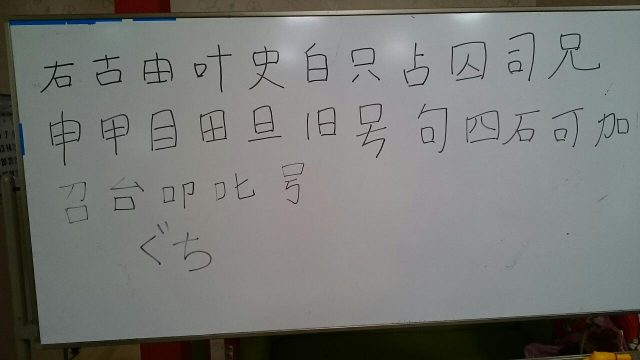 右古由叶史白只占囚司兄
申甲目田旦旧号句四石可加
召台叩叱号
ぐち